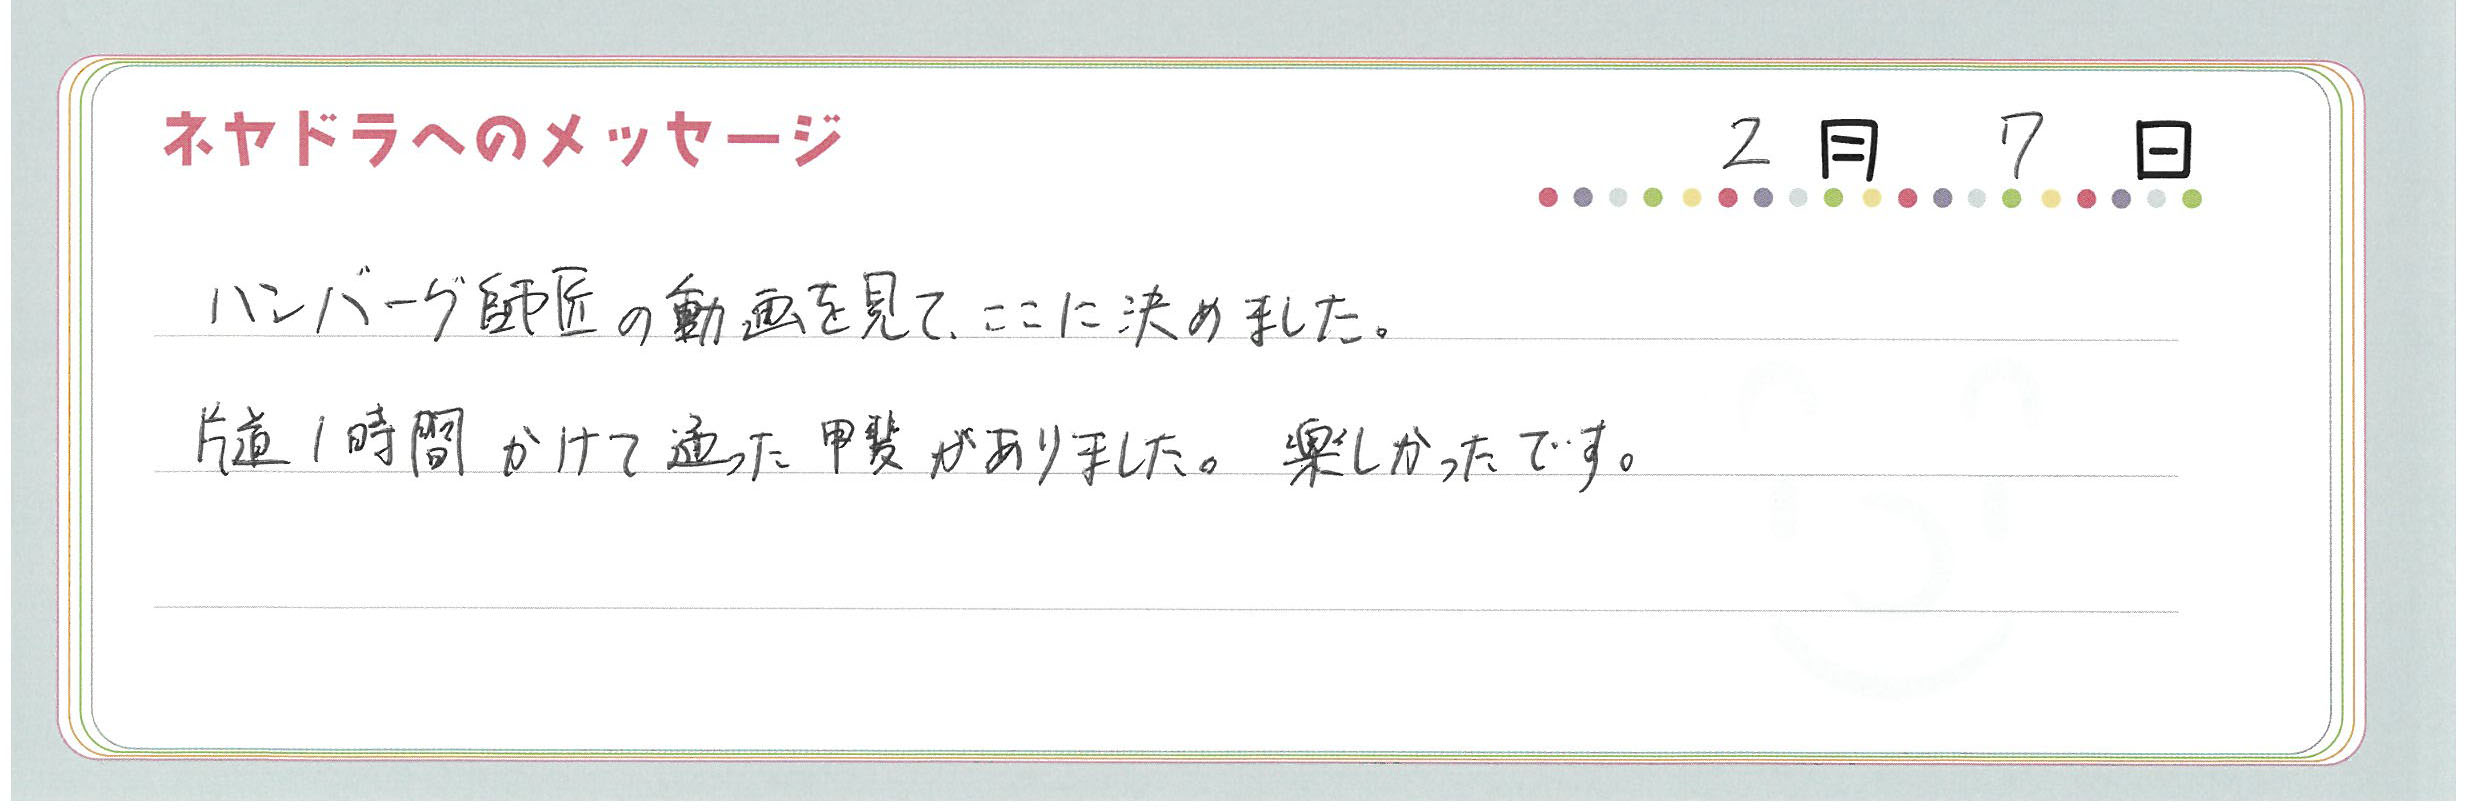 ネヤドラへのメッセージ
2月 7日
ハンバーグ師匠の動画を見て、ここに決めました。
片道1時間かけて通った甲斐がありました。楽しかったです。